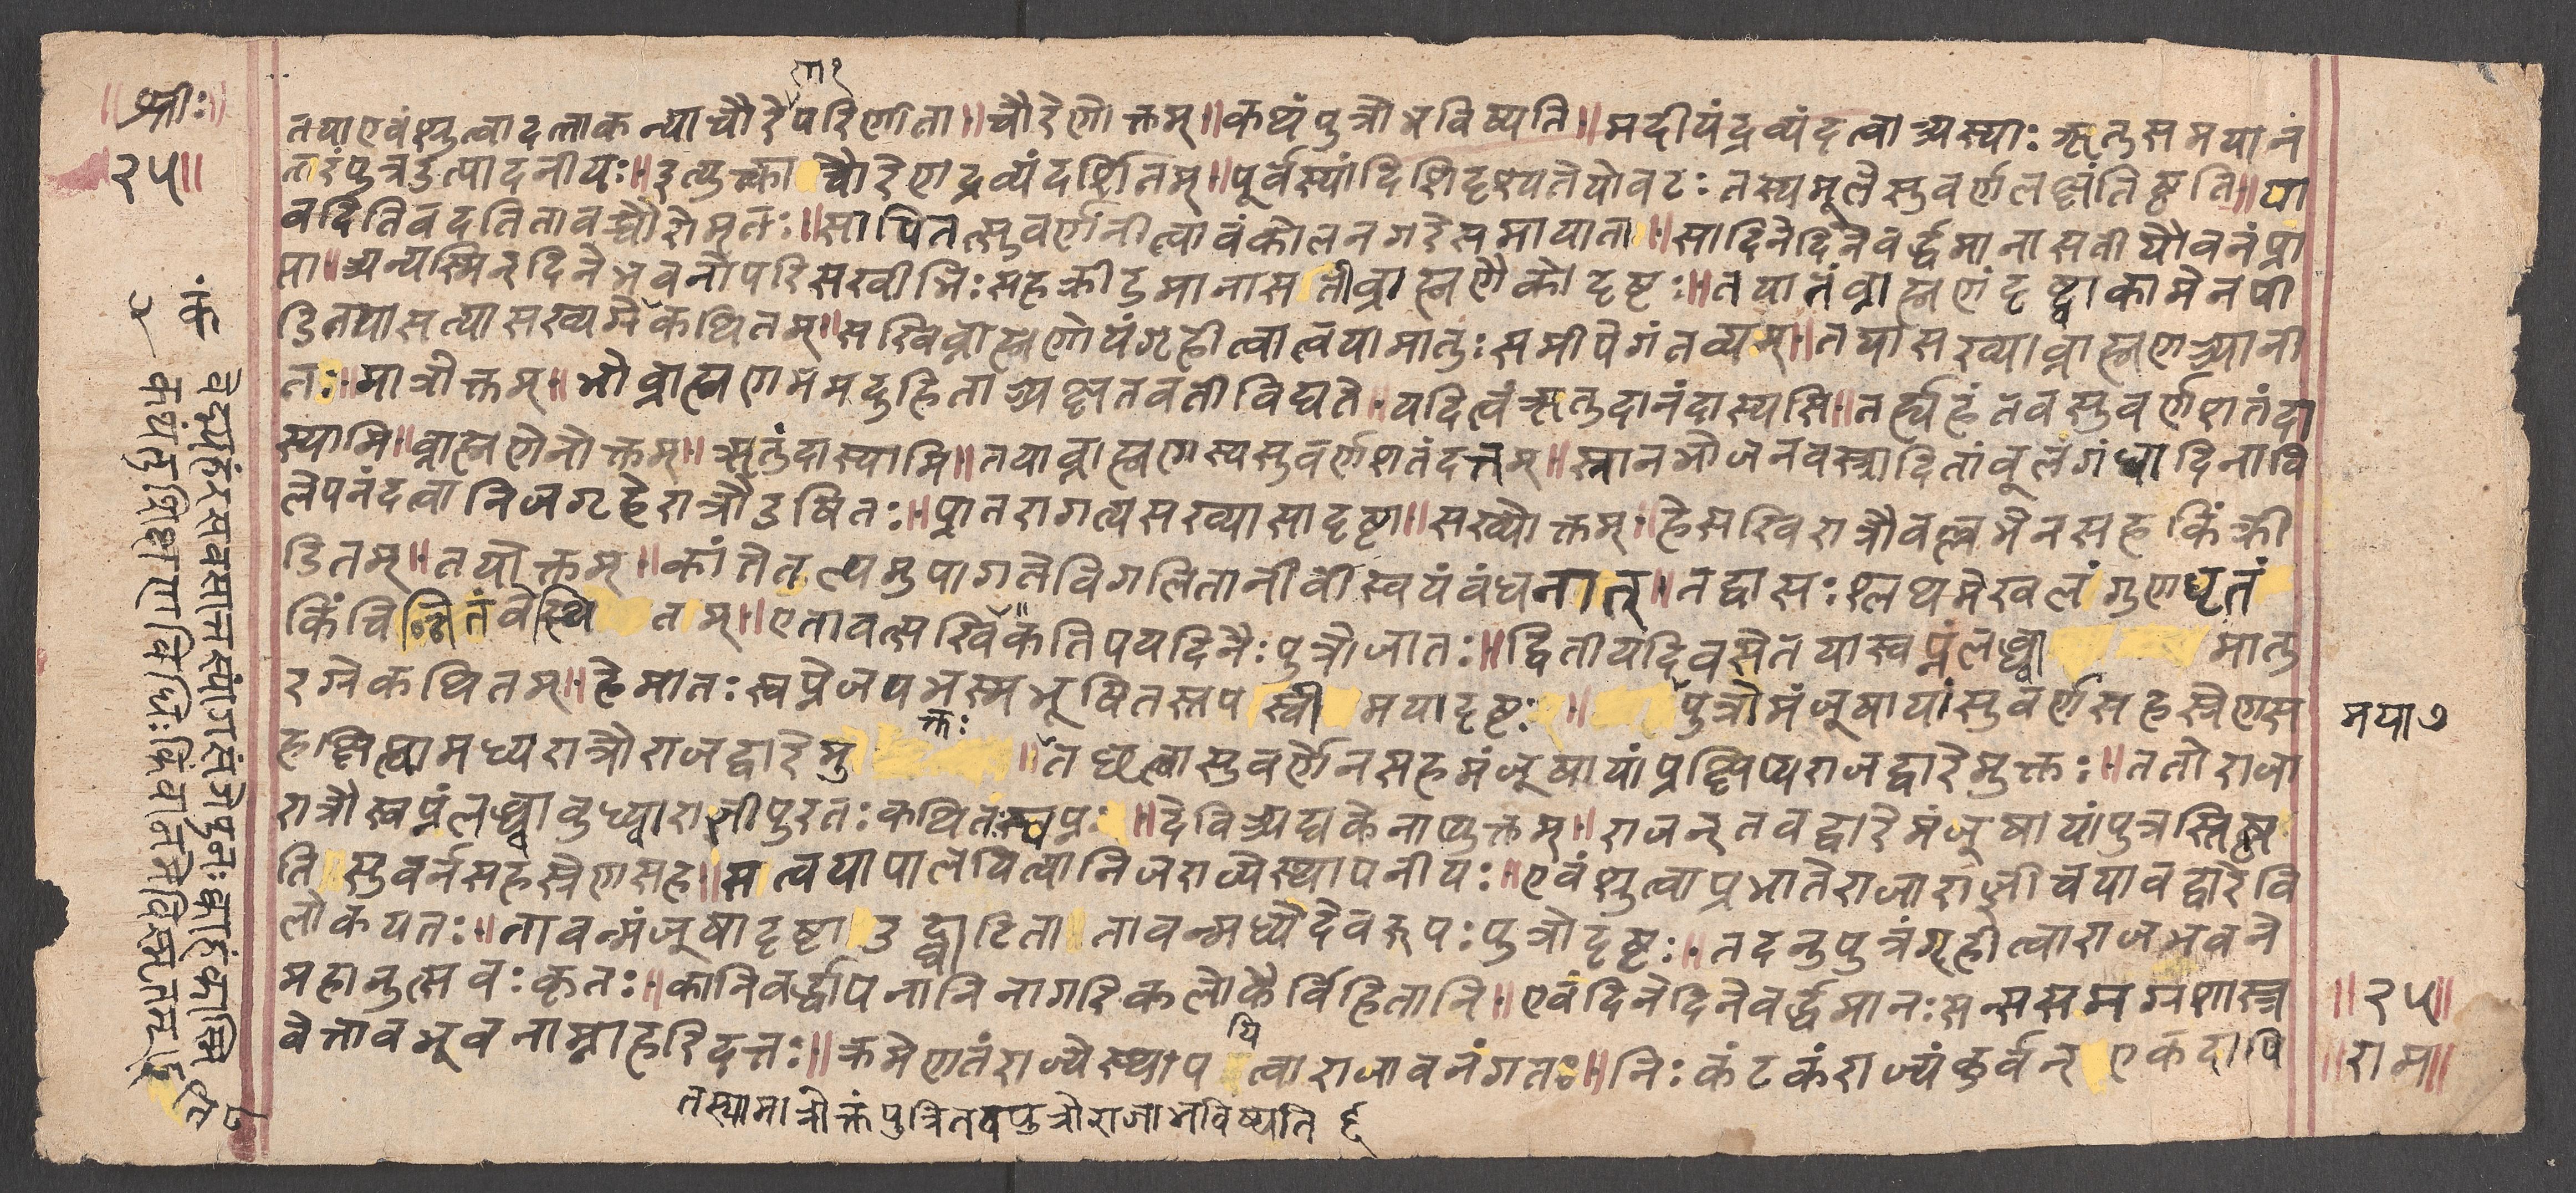 श्रीः
२५
तया एवं श्रुत्वा दत्ता कन्या चौरेपरिणीता ॥ चौरेणोक्तम् ॥ कथं पुत्रो भविष्यति ॥ मदीयं द्रव्यं दत्वा अस्याः ऋतुसमयानं
तरं पुत्र उत्पादनीयः ॥ इत्युक्त्वा चौरेण द्रव्यं दर्शितम् ॥ पूर्वस्यां दिशि दृश्यते यो वटः तस्य मूले सुवर्णलक्षं तिष्ठति ॥ या
वदिति वदति तावच्चौरो मृतः ॥ सापि तत्सुवर्णं नीत्वा वंकोलनगरे समायाता ॥ सा दिने दिने वर्द्धमाना सती यौवनं प्रा
प्ता ॥ अन्यस्मिन् दिने भवनोपरि सखीभिः सह क्रीडमाना सती ब्राह्मणैको दृष्टः ॥ तया तं ब्राह्मणं दृष्ट्वा कामेन पी
डितया सत्या सख्यग्रे कथितम् ॥ सखि ब्राह्मणोयं गृहीत्वा त्वया मातुः समीपे गंतव्यम् ॥ तया सख्या ब्राह्मण आनी
तः ॥ मात्रोक्तम् ॥ भो ब्राह्मण मम दुहिता अक्षतवती विद्यते ॥ यदि त्वं ऋतुदानं दास्यसि ॥ तर्ह्यहं तव सुवर्णशतं दा
स्यामि ॥ ब्राह्मणेनोक्तम् ॥ ऋतुं दास्यामि ॥ तया ब्राह्मणस्य सुवर्णशतं दत्तम् ॥ स्नानभोजनवस्त्रादितांबूलंगंधादिना वि
लेपनं दत्वा निजगृहे रात्रौ उषितः ॥ प्रातरागत्य सख्या सा दृष्टा ॥ सख्योक्तम् ॥ हे सखि रात्रौ वल्लभेन सह किं क्री
डितम् ॥ तयोक्तम् ॥ कांते तल्पमुपागते विगलिता नीवी स्वयं बंधनात् ॥ तद्वासः श्लथमेखलं गुणधृतं
किंचिन्नितंवे स्थितम् ॥ एतावत्सखि कतिपयदिनैः पुत्रो जातः ॥ द्वितीयदिवसे तया स्वप्नं लब्ध्वा मातु
रग्रे कथितम् ॥ हे मातः स्वप्ने जपभस्मभूषितस्तपस्वी मया दृष्टः ॥ पुत्रो मंजूषायां सुवर्णसहस्रेण स
ह क्षिप्त्वा मध्यरात्रौ राजद्वारे मुक्तः ॥ तच्छ्रुत्वा सुवर्णेन सह मंजूषायां प्रक्षिप्य राजद्वारे मुक्तः ॥ ततो राजा
रात्रौ स्वप्नं लब्ध्वा बुध्वा राज्ञीपुरतः कथितः स्वप्नः ॥ देवि अद्य केनाप्युक्तम् ॥ राजन् तव द्वारे मंजूषायां पुत्रस्तिष्ठ
ति सुवर्नसहस्रेण सह ॥ स त्वया पालयित्वा निजराज्ये स्थापनीयः ॥ एवं श्रुत्वा प्रभाते राजा राज्ञी च यावद्द्वारे वि
लोकयतः ॥ तावन्मंजूषा दृष्टा उद्घाटिता तावन्मध्ये देवरूपः पुत्रो दृष्टः ॥ तदनु पुत्रं गृहीत्वा राजभवने
महानुत्सवः कृतः ॥ कानि वर्द्धापनानि नागरिकलोकैर्विहितानि ॥ एवं दिने दिने वर्द्धमानः सन् स समग्रशास्त्र
वेत्ता बभूव नाम्ना हरिदत्तः ॥ क्रमेण तं राज्ये स्थापयित्वा राजा वनं गतः ॥ निः कंटकं राज्यं कुर्वन् एकदापि
तस्या मात्रोक्तं पुत्रि तव पुत्रो राजा भविष्यति ६
मया ७
॥ २५ ॥
॥ राम ॥